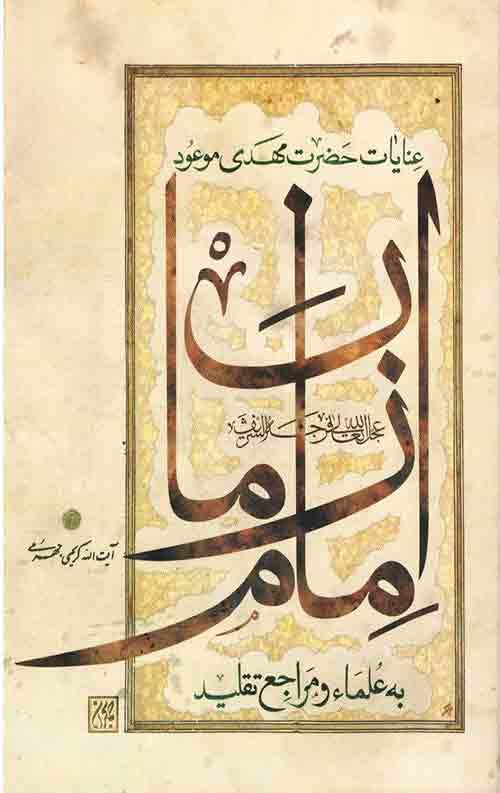 عنایات حضرت مهدی موعود
عجل الله تعالی فرجه الشریف
اِمام
آیت الله کریمی جهرمی
به عُلماء و مَراجع تقلید